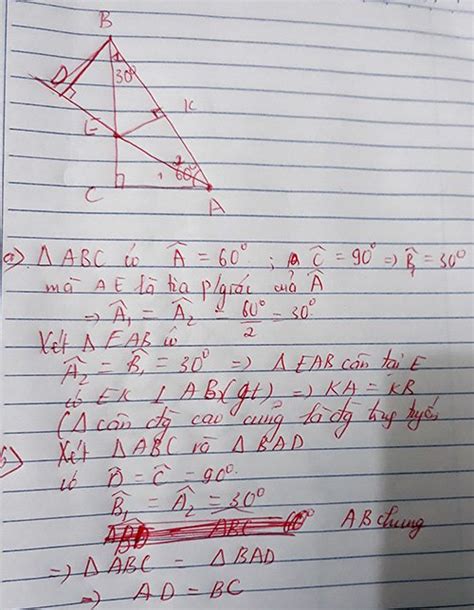 B
D
1
30°
K
E
2
1 60°
C
A
a) Δ ABC có Â = 60° ; Ĉ = 90° ⇒ B̂₁ = 30°
mà AE là tia p/giác của Â
⇒ Â₁ = Â₂ = 60°/2 = 30°
Xét Δ EAB có
Â₂ = B̂₁ = 30° ⇒ Δ EAB cân tại E
có EK ⊥ AB (gt) ⇒ KA = KB
(Δ cân đg cao cũng là đg trung tuyến
b) Xét Δ ABC và Δ BAD
có D̂ = Ĉ = 90°
B̂₁ = Â₂ = 30°
AB chung
⇒ Δ ABC = Δ BAD
⇒ AD = BC